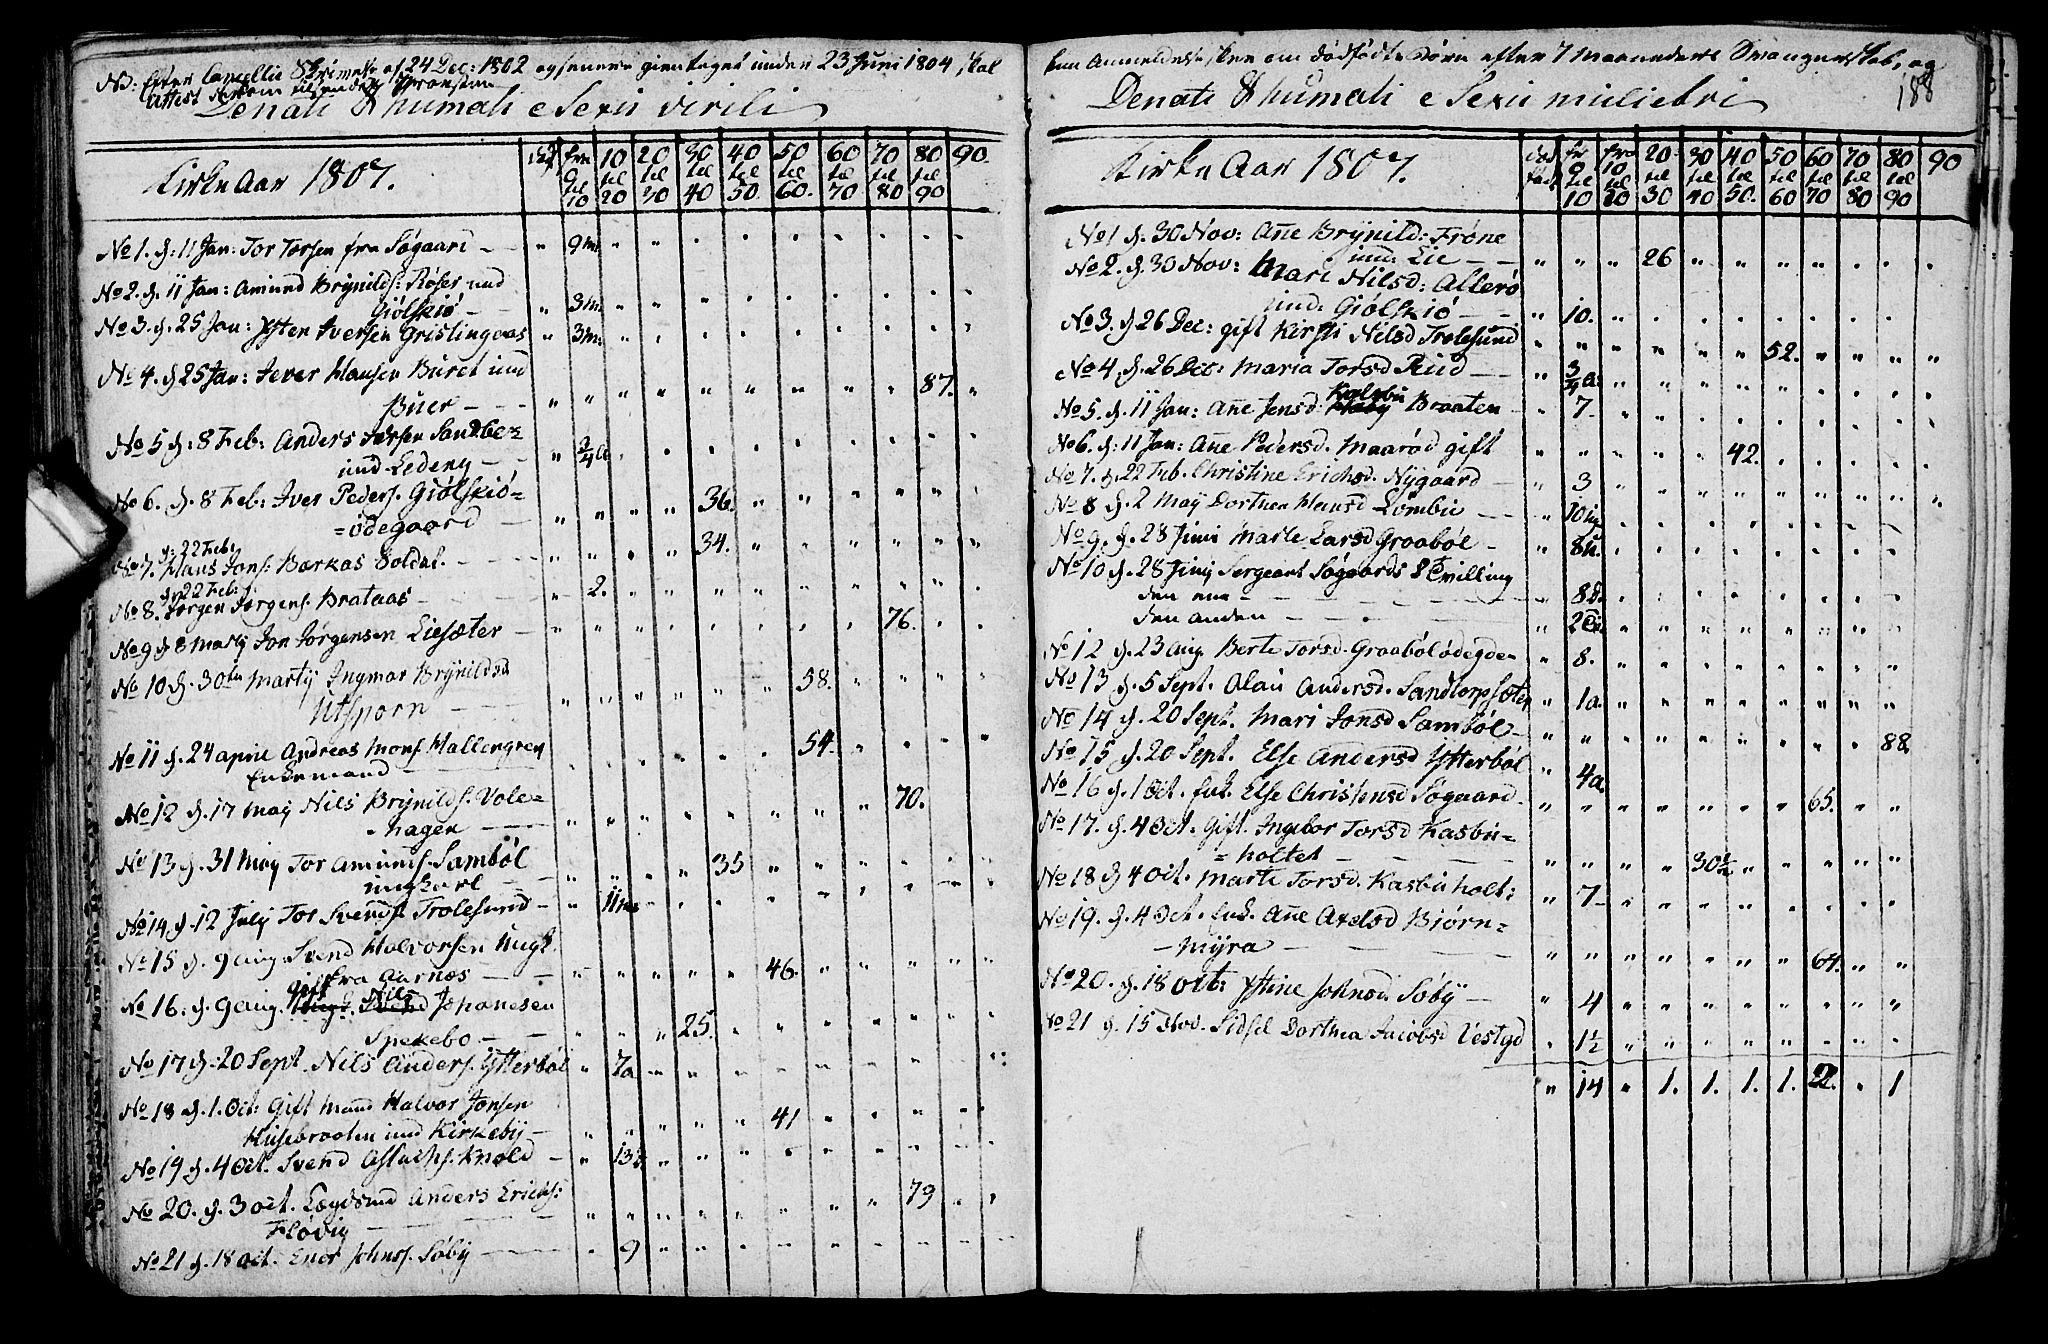 NB: Efter Cancellie Skrivelse af 24 Dec: 1802 og senere gientaget under 23 Juni 1804, skal
Attest
Denati & humati e Sexu virili
Kirke Aar 1807.
fra 0 til 10
10 til 20
20 til 30
30 til 40
40 til 50.
50 til 60.
60 til 70
70 til 80
80 til 90
90.
No 1. d: 11 Jan: Tor Torsen fra Søgaard - " 9m:
No 2. d. 11 Jan: Amund Brÿnilds: Røser und
Giølskiø - " 3m:
No 3. d. 25 Jan: Ysten Iversen Gristingaas " 3m:
No 4. d 25 Jan: Iever Hansen Buret und
Buer - 87.
No 5 d: 8 Feb: Anders Iversen Sandbe=
und Ledeng - " 3/4 a
No 6. d. 8 Feb: Iver Peders. Giølskiø=
=ødegaard - 36.
d: 22 Feb:
No 7. Hans Jons: Barkas Soldat. 34.
d: 22 Feb:
No 8. Jørgen Jørgens. Brataas - 2.
No 9 d 8 Martÿ Jon Jørgensen Liesæter - 76.
No 10 d. 30ten Martÿ Ingmar Brÿnildsd
Utsporn - 58.
No 11 d. 24 april Andreas Mons. Hallengren
Enkemand - 54.
No 12 d. 17 Maÿ Nils Brÿnilds. Vole=
hagen - 70.
No 13 d. 31 Maÿ Tor Amunds. Sambøl
ungkarl - 35
No 14 d. 12 Julÿ Tor Svends. Trolesund - " 11m:
No 15 d. 9 aug. Svend Halvorsen Ungk.
fra Aarnæs - 46.
gift Nils
No 16. d. 9 aug. Ungk. Svend Johanesen
Spekebo - 25.
No 17 d. 20 Sept. Nils Anders. Ytterbøl " 7a
No 18 d. 1. Oct: Gift Mand Halvor Jonsen
Husebraaten und Kirkebÿ - 41
No 19 d. 4 Oct. Svend Aslachs. Knold - " 13
No 20. d. 3 oct. Lægdsmd Anders Erichs:
Fløvig - 79
No 21 d. 18 oct. Enor Johns. Søbÿ - 9
kun Anmeldelse skee om dødfødte Børn efter 7 Maaneders Svangerskab, og
188
Denati & humati e Sexu muliebri
Kirke Aar 1807.
død født
fr 0 til 10
fra 10 til 20
20 til 30
30 til 40
40 til 50.
50 til 60
60 til 70
70 til 80
80 til 90
90
No 1 d. 30 Nov: Añe Brÿnild: Frøne
und: Lie - 26
No 2. d. 30 Nov: Mari Nilsd: Allerø
und: Giølskiø - " 10.
No 3. d 26 Dec: gift Kirsti Nilsd Trolesund 52.
No 4. d. 26 Dec: Maria Torsd Ruud - " 3/4 a:
Kalsbü
No 5. d. 11 Jan: Añe Jensd: Braaten - " 7.
No 6. d: 11 Jan: Añe Pedersd. Maarød gift 42.
No 7. d. 22 Feb. Christine Erichsd. Nÿgaard - " 3
No 8 d. 2 Maÿ Dorthea Hansd Lømbü - " 10
No 9. d. 28 Juni Marte Larsd Graabøl - " 8u.
No 10 d. 28 Junÿ Sergeant Søgaards 2 Tvilling
den ene - " 8d.
den anden - " 2
No 12 d. 23 aug Berte Torsd. Graabøl ødegden " 8.
No 13 d. 5 Sept. Alau Andersd. Sandtorpsæter " 1a.
No 14 d. 20 Sept. Mari Jonsd Sambøl - 88
No 15 d. 20 Sept. Else Andersd Ytterbøl " 4a.
No 16 d. 1 Oct. Enk. Else Christensd Søgaard. 65.
No 17. d. 4 Oct. Gift. Ingebor Torsd Kasbü=
=holtet - 30 1/2
No 18 d 4 Oct. Marte Torsd. Kasbü holt: " 7
No 19. d. 4 Oct. Enk. Añe Axelsd Biørn=
mÿra - 64.
No 20. d. 18 oct: Ystine Johnsd Søbÿ - " 4
No 21 d. 15 Nov. Sidsel Dorthea Jacobsd Vestgd " 1 1/2
" 14 " 1. 1. 1. 1. 2. " 1